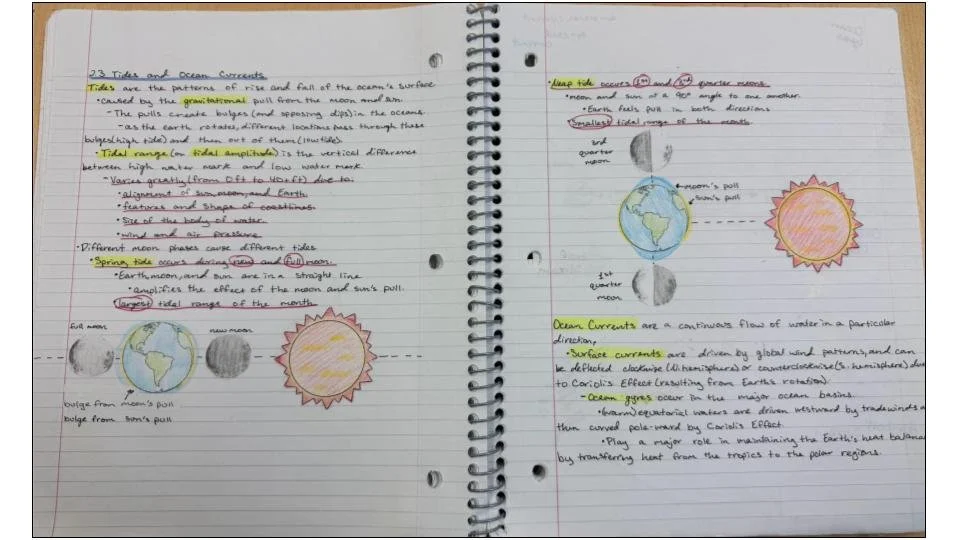 23 Tides and Ocean Currents
Tides are the patterns of rise and fall of the ocean's surface
•caused by the gravitational pull from the moon and sun.
- The pulls create bulges (and opposing dips) in the oceans.
- as the earth rotates, different locations pass through these
bulges (high tide) and then out of them (low tide).
•Tidal range (or tidal amplitude) is the vertical difference
between high water mark and low water mark.
- Varies greatly (from 0ft to 40+ft) due to:
•alignment of sun, moon, and Earth.
•features and shape of coastlines.
•Size of the body of water.
•wind and air pressure
•Different moon phases cause different tides
•Spring tide occurs during new and full moon.
•Earth, moon, and sun are in a straight line
•amplifies the effect of the moon and sun's pull.
•largest tidal range of the month
full moon
new moon
bulge from moon's pull
bulge from sun's pull
•Neap tide occurs 1st and 3rd quarter moons.
•moon and sun at a 90° angle to one another.
•Earth feels pull in both directions.
•Smallest tidal range of the month.
3rd
quarter
moon
moon's pull
sun's pull
1st
quarter
moon
Ocean Currents are a continuous flow of water in a particular
direction,
•Surface currents are driven by global wind patterns, and can
be deflected clockwise (N. hemisphere) or counterclockwise (S. hemisphere) due
to Coriolis Effect (resulting from Earth's rotation).
- Ocean gyres occur in the major ocean basins.
•(warm) equatorial waters are driven westward by tradewinds
then curved pole-ward by Coriolis Effect.
•Play a major role in maintaining the Earth's heat balance
by transferring heat from the tropics to the polar regions.